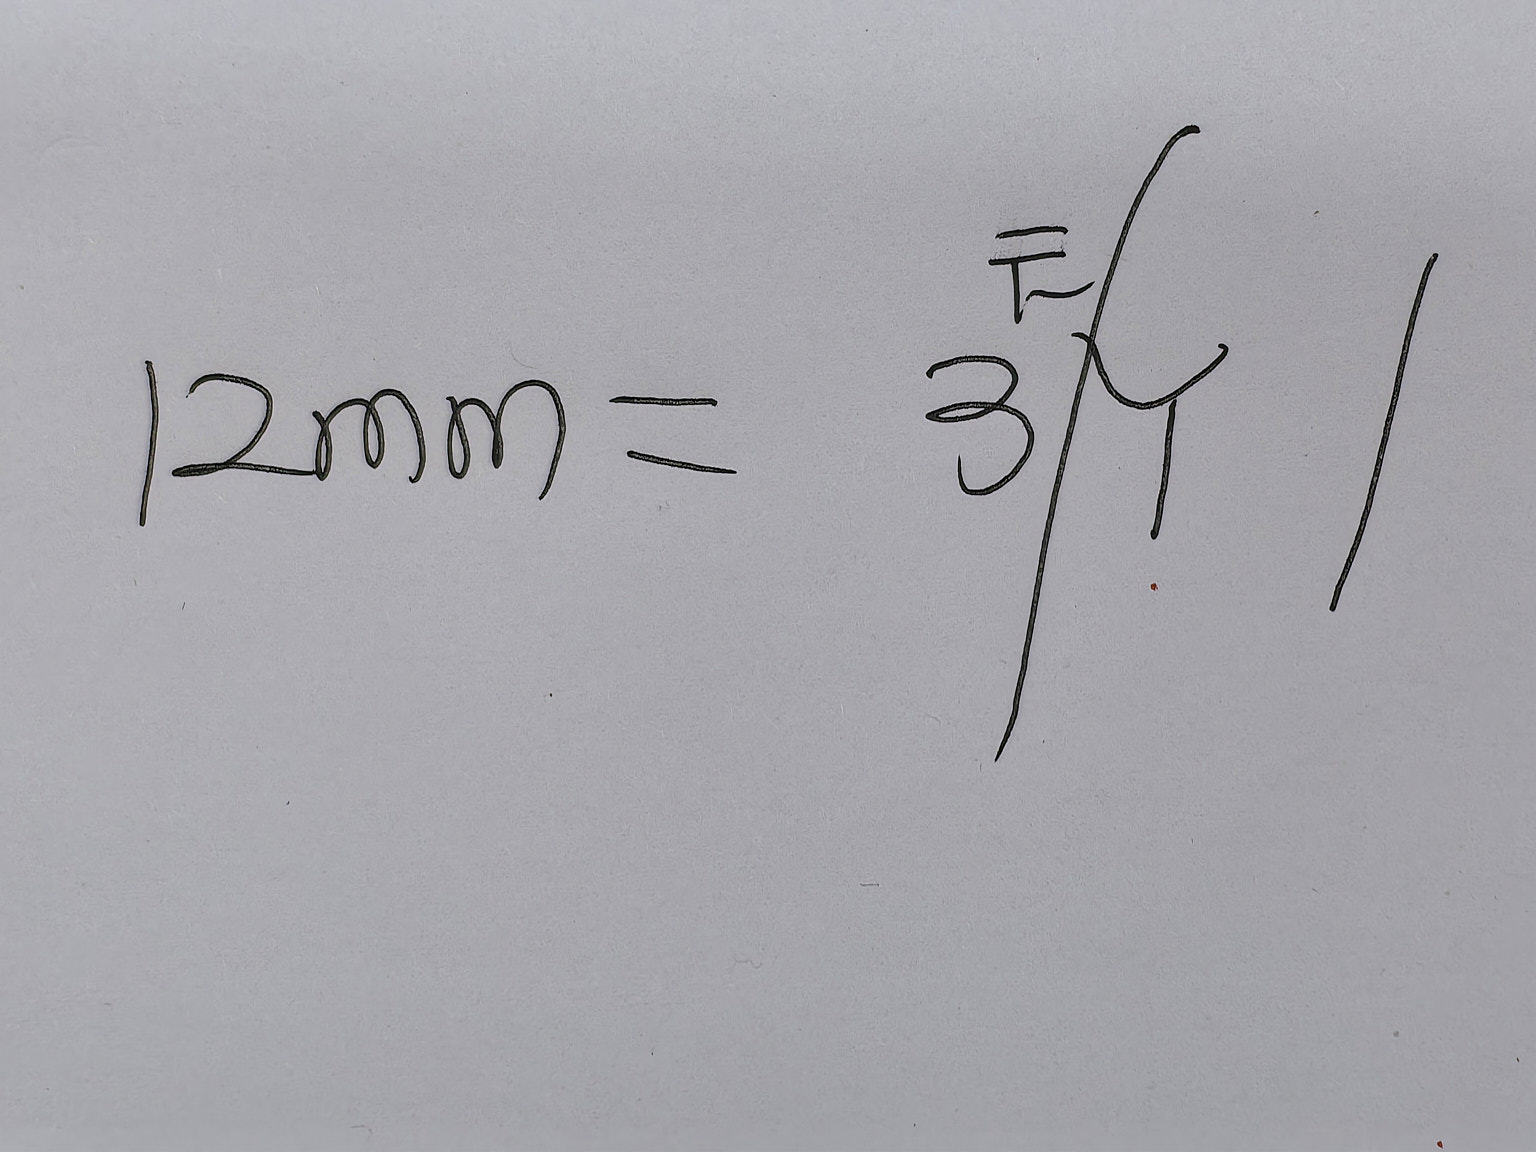 12mm = 3/4 /